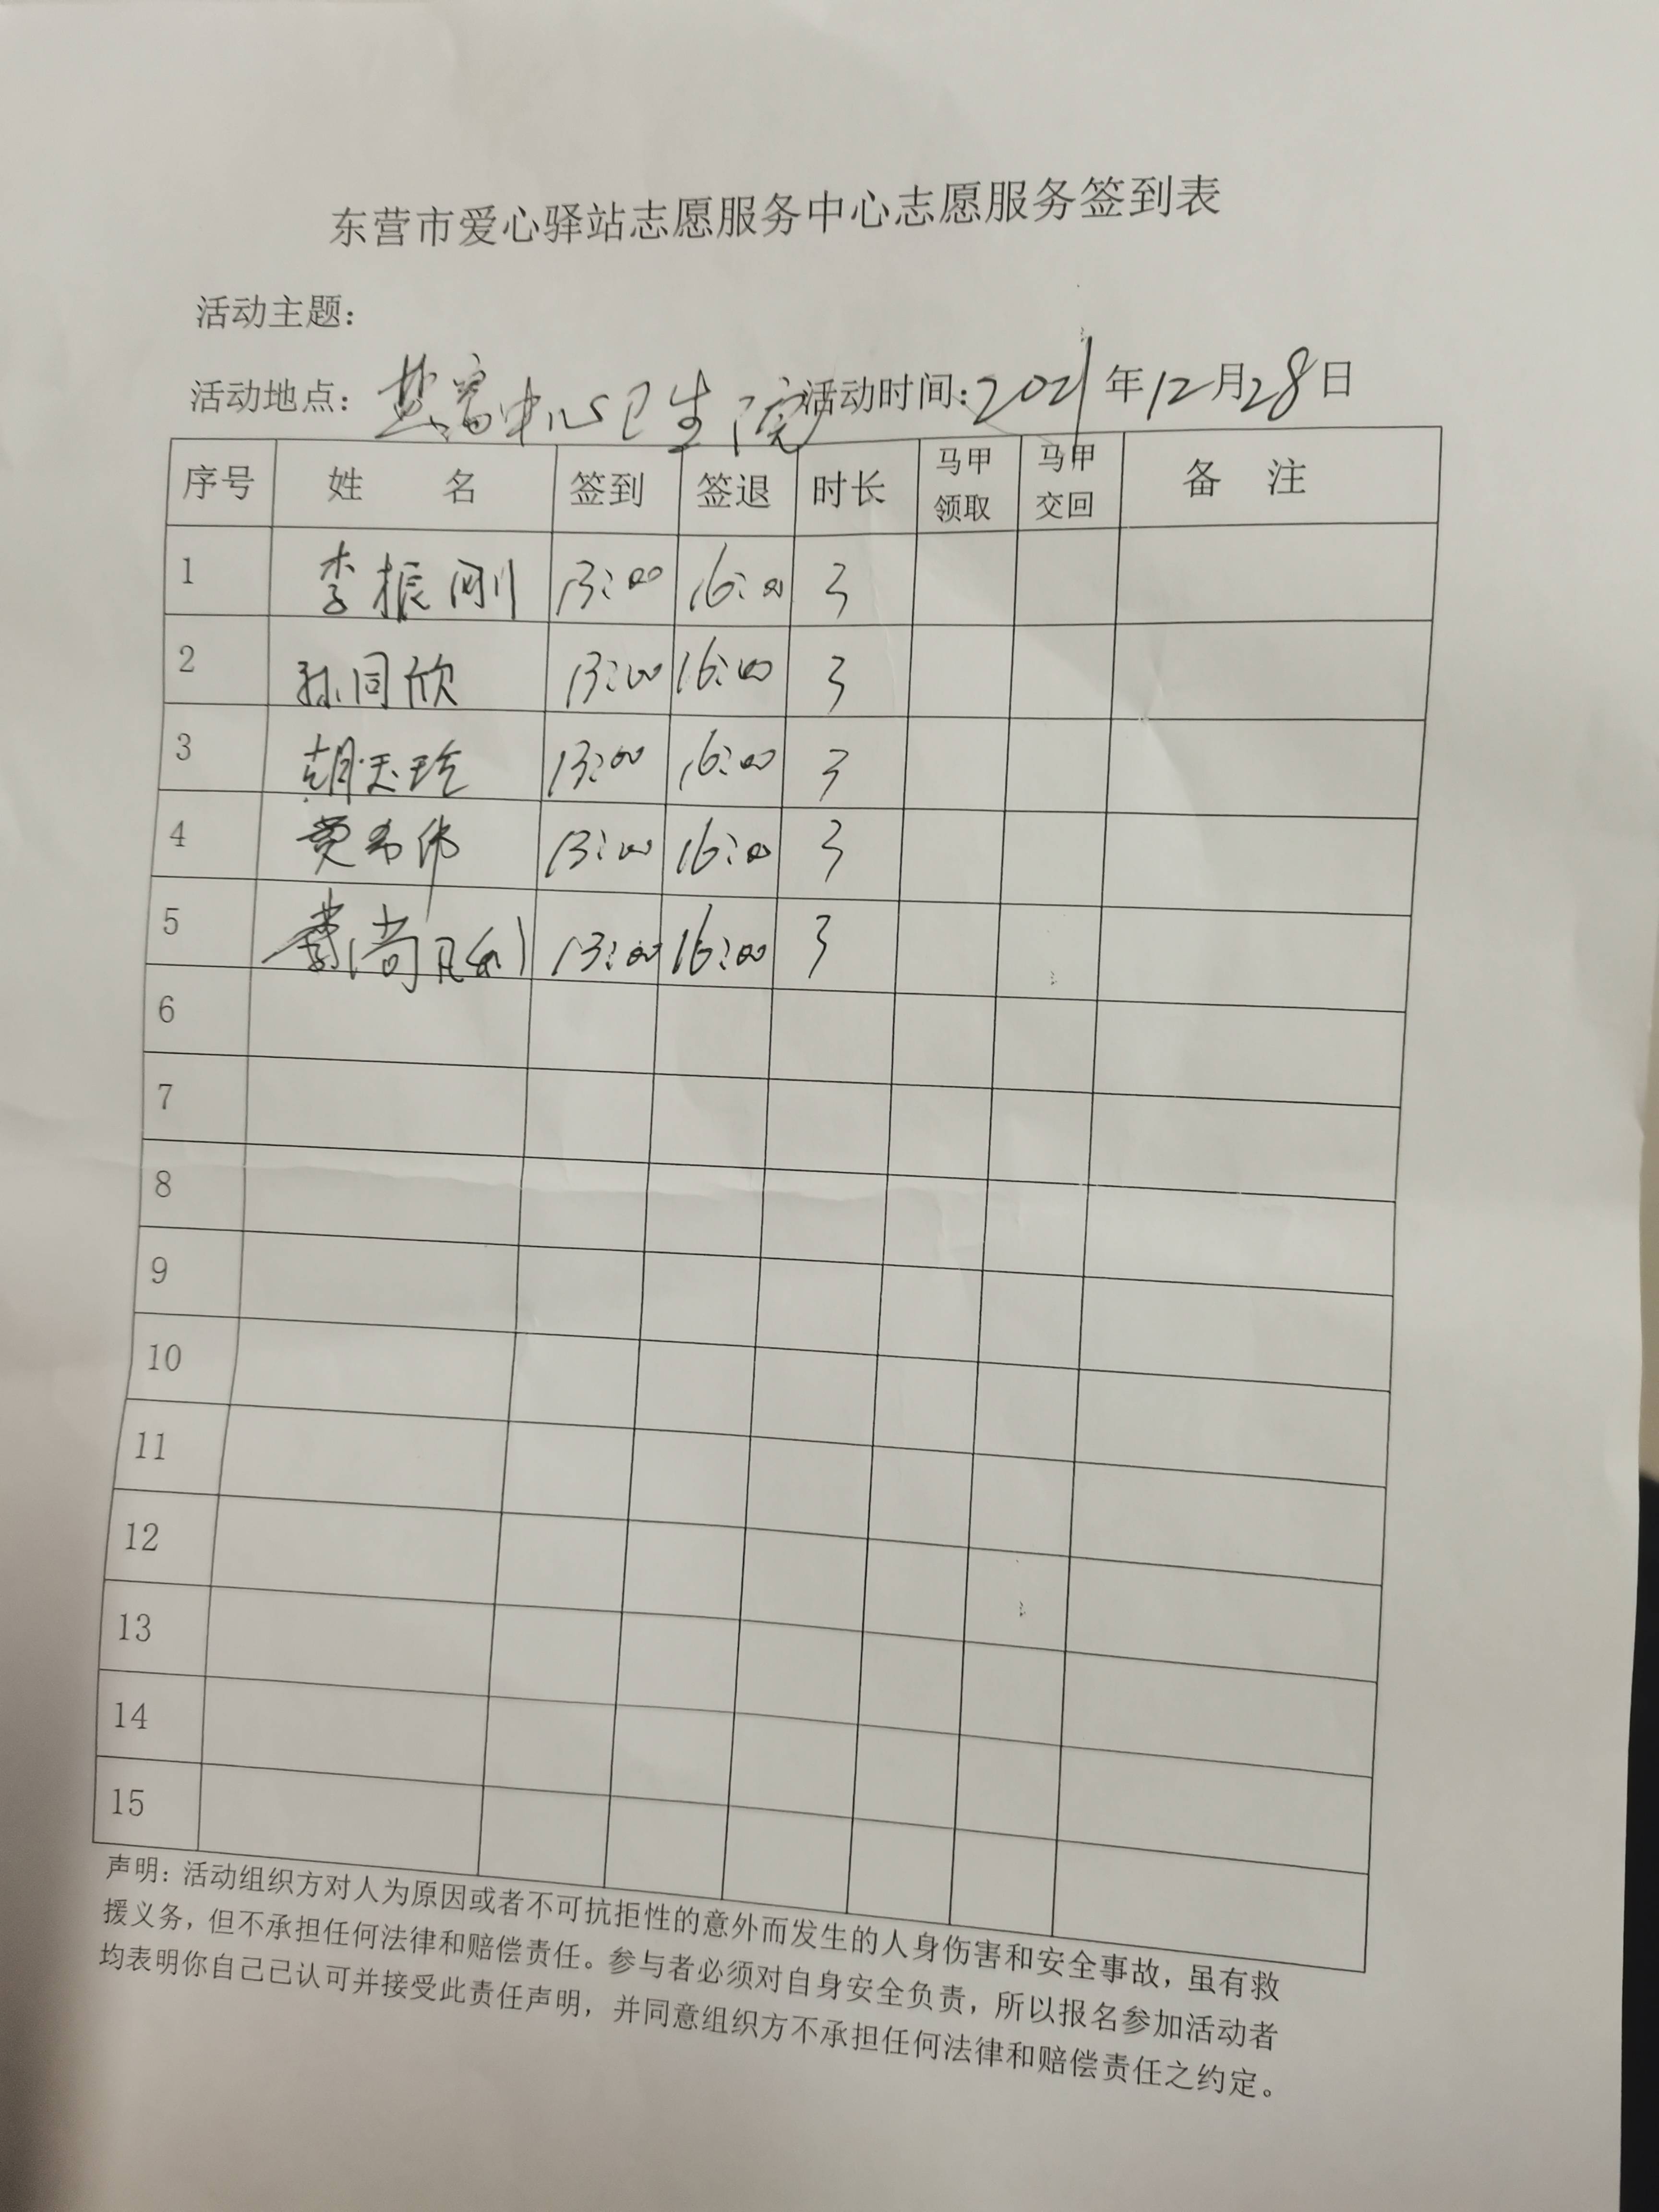 东营市爱心驿站志愿服务中心志愿服务签到表
活动主题：
活动地点： 中心卫生院 活动时间：2021年12月28日
序号 姓 名 签到 签退 时长 马甲领取 马甲交回 备 注
1 李振刚 13:00 16:00 3
2 孙同欣 13:00 16:00 3
3 胡玉玲 13:00 16:00 3
4 13:00 16:00 3
5 13:00 16:00 3
6
7
8
9
10
11
12
13
14
15
声明：活动组织方对人为原因或者不可抗拒性的意外而发生的人身伤害和安全事故，虽有救
援义务，但不承担任何法律和赔偿责任。参与者必须对自身安全负责，所以报名参加活动者
均表明你自己已认可并接受此责任声明，并同意组织方不承担任何法律和赔偿责任之约定。